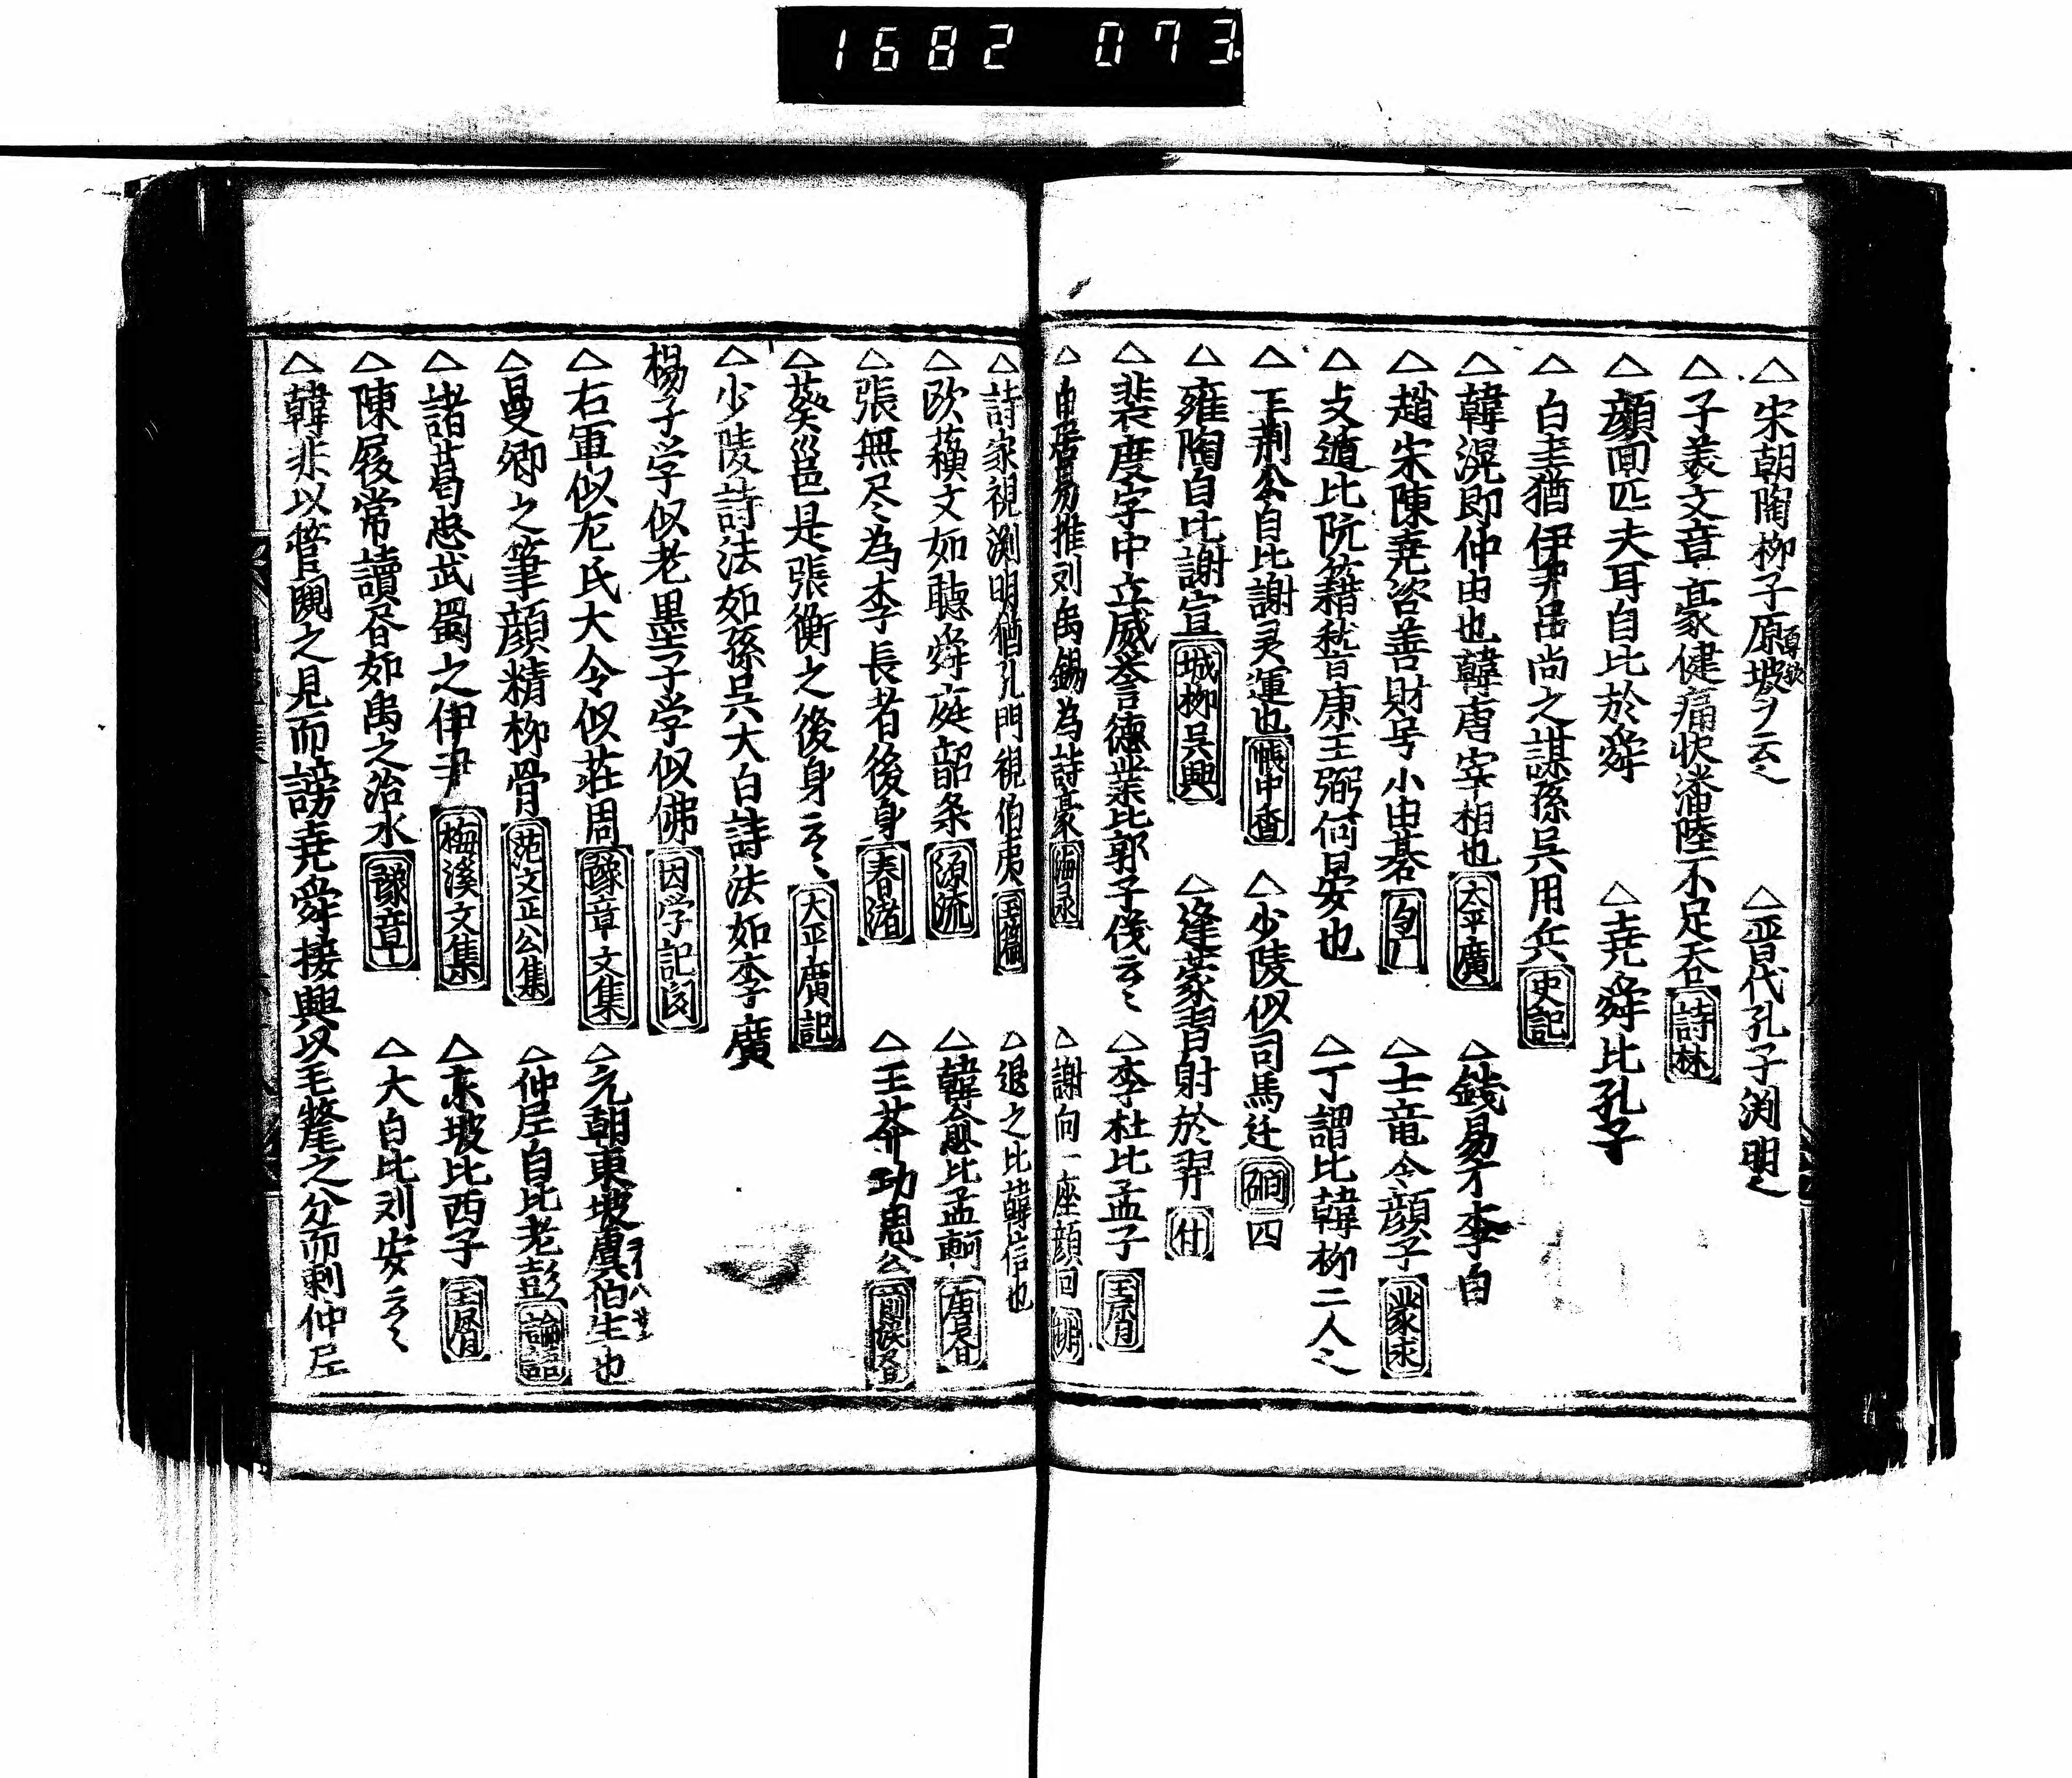 1682 073
△宋朝陶柳子原坡ヲ云々 △晋代孔子渕明々
△子美文章高豪健痛快潘陸不足呑 詩林
△顔回匹夫耳自比於舜 △堯舜比孔子
△白圭猶伊尹呂尚之謀孫呉用兵 史記
△韓滉即仲由也韓唐宰相也 太平廣 △錢易才李白
△趙宋陳堯咨善財号小由基 △士竜今顔子 蒙求
△支遁比阮籍嵇康王弼何晏也 △丁謂比韓柳二人々
△王荆公自比謝灵運也 帳中香 △少陵似司馬迁 四
△雍陶自比謝宣 城柳呉興 △逢蒙習射於羿
△裴度字中立威誉德業比郭子儀云々 △李杜比孟子
△白居易推刘禹錫為詩豪 △謝向一座顔回
△詩家視渕明猶孔門視伯夷 △退之比韓信也
△欧蘓文如聴舜庭韶条 源流 △韓愈比孟軻
△張無尽為李長者後身 春渚 △王莽功周公
△蔡邕是張衡之後身云々 大平廣記
△少陵詩法如孫呉大白詩法如李廣
楊子学似老墨子学似佛 因学記
△右軍似左氏大令似荘周 豫章文集 △元朝東坡虞伯生也
△曼卿之筆顔精柳骨 范文正公集 △仲尼自比老彭 論語
△諸葛忠武蜀之伊尹 梅溪文集 △東坡比西子
△陳履常讀昏如禹之治水 豫章 △大白比刘安云々
△韓非以管闚之見而謗堯舜接輿以毛氂之分而刺仲尼